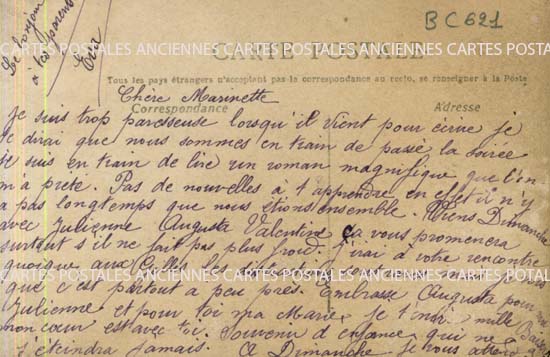 BC621
Le bonjour
à tes parents
Eva
CARTES POSTALES ANCIENNES CARTES POSTALES ANCIENNES CARTES POSTALES
CARTE POSTALE
Tous les pays étrangers n'acceptent pas la correspondance au recto, se renseigner à la Poste
Chère Marinette
Correspondance Adresse
Je suis trop paresseuse lorsqu'il vient pour écrire je
te dirai que nous sommes en train de passé la soirée
je suis en train de lire un roman magnifique que l'on
m'a prêté. Pas de nouvelles à t'apprendre en effet il n'y
a pas longtemps que nous étions ensemble. Viens Dimanche
avec Julienne Augusta Valentine ça vous promenera
surtout s'il ne fait pas plus froid. J'irai à votre rencontre
quoique aux
CARTES POSTALES ANCIENNES CARTES POSTALES ANCIENNES CARTES POSTALES
que c'est partout a peu près. Embrasse Augusta pour moi
Julienne et pour toi ma Marie je t'envoi mille Baisers
mon cœur est avec toi. Souvenir d'enfance qui ne
s'éteindra jamais. A Dimanche je vous